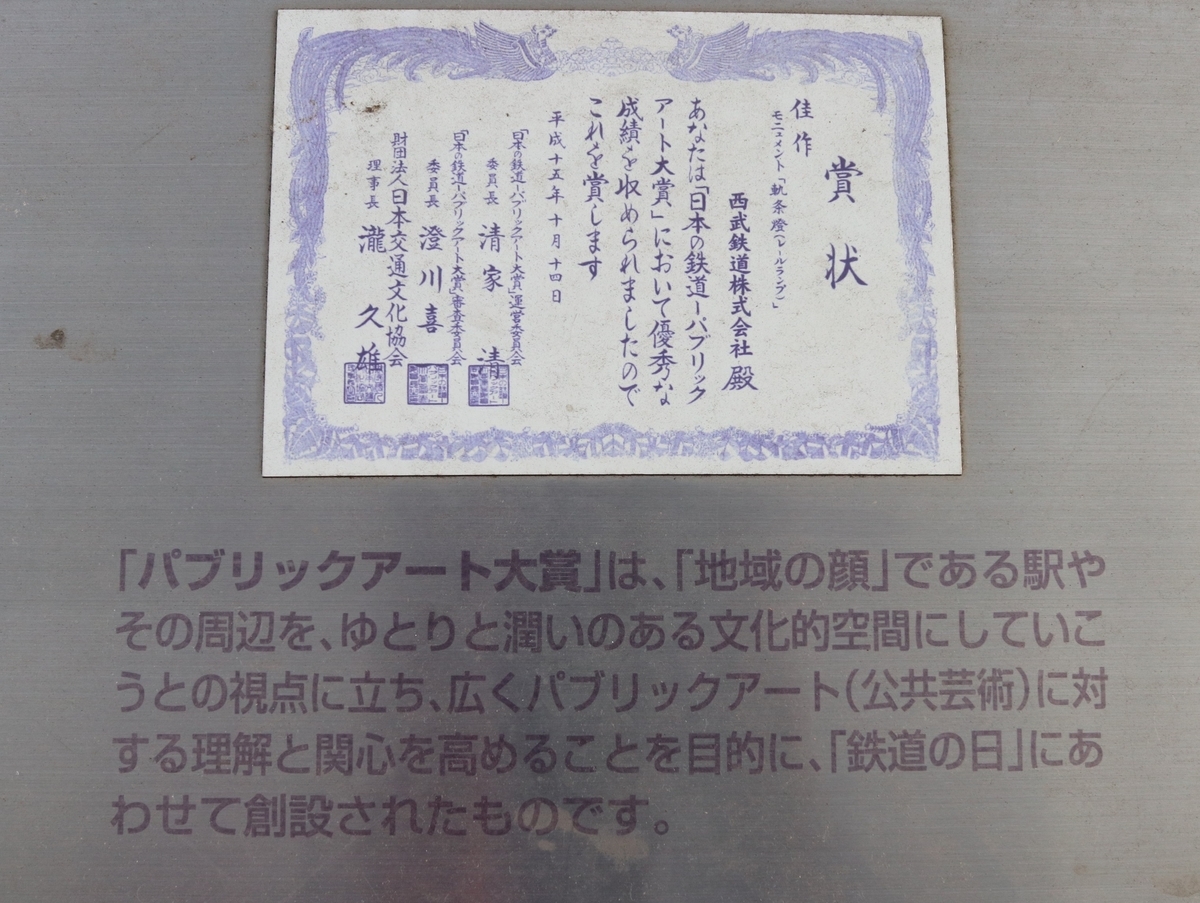 賞状
佳作
モニュメント「軌条燈(レールランプ)」
西武鉄道株式会社殿
あなたは「日本の鉄道ーパブリック
アート大賞」において優秀な
成績を収められましたので
これを賞します
平成十五年十月十四日
「日本の鉄道ーパブリックアート大賞」運営委員会
委員長 清家清
「日本の鉄道ーパブリックアート大賞」審査委員会
委員長 澄川喜一
財団法人日本交通文化協会
理事長 瀧久雄
「パブリックアート大賞」は、「地域の顔」である駅や
その周辺を、ゆとりと潤いのある文化的空間にしていこ
うとの視点に立ち、広くパブリックアート(公共芸術)に対
する理解と関心を高めることを目的に、「鉄道の日」にあ
わせて創設されたものです。